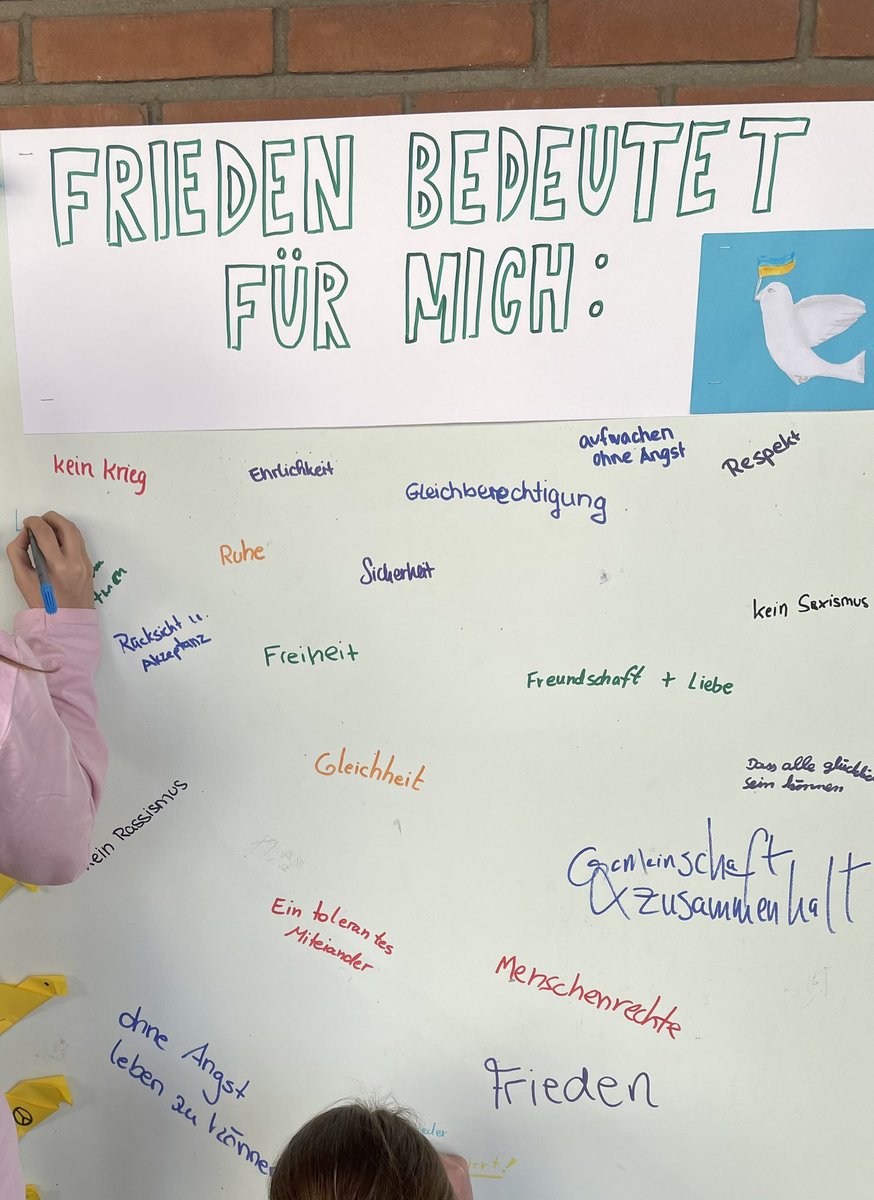 FRIEDEN BEDEUTET
FÜR MICH:
kein Krieg
Ehrlichkeit
aufwachen
ohne Angst
Respekt
Gleichberechtigung
Ruhe
Sicherheit
kein Sexismus
Rücksicht u.
Akzeptanz
Freiheit
Freundschaft + Liebe
Gleichheit
Dass alle
sein können
Rassismus
Gemeinschaft
& zusammenhalt
Ein tolerantes
Miteiander
Menschenrechte
ohne Angst
leben zu
Frieden